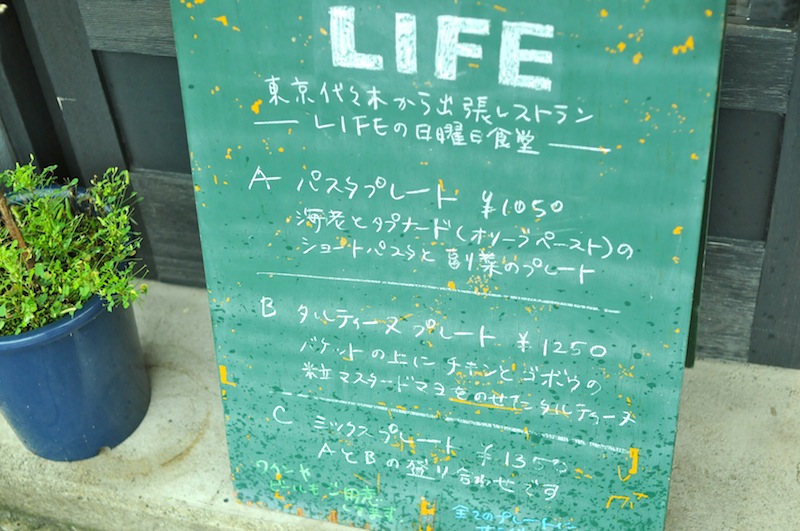 LIFE
東京代々木から出張レストラン
— LIFEの日曜日食堂 —
A パスタプレート ¥1050
海老とタプナード(オリーブペースト)の
ショートパスタと副菜のプレート
B タルティーヌプレート ¥1250
バゲットの上にチキンとゴボウの
粒マスタードマヨをのせてタルティーヌ
C ミックスプレート ¥1350
AとBの盛り合わせです
ワインや
ビールもご用意
ます
全てのプレートに